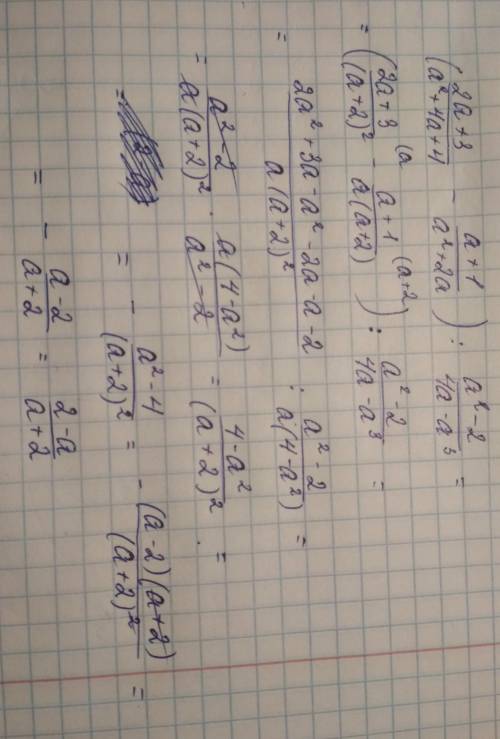 (2a+3/a²+4a+4 - a+1/a²+2a) : a²-2/4a-a³ =
= (2a+3 (a/(a+2)² - a+1 (a+2/a(a+2)) : a²-2/4a-a³ =
= 2a²+3a-a²-2a-a-2/a(a+2)² : a²-2/a(4-a²) =
= a²-2/a(a+2)² · a(4-a²)/a²-2 = 4-a²/(a+2)² =
= - a²-4/(a+2)² = - (a-2)(a+2)/(a+2)² =
= - a-2/a+2 = 2-a/a+2